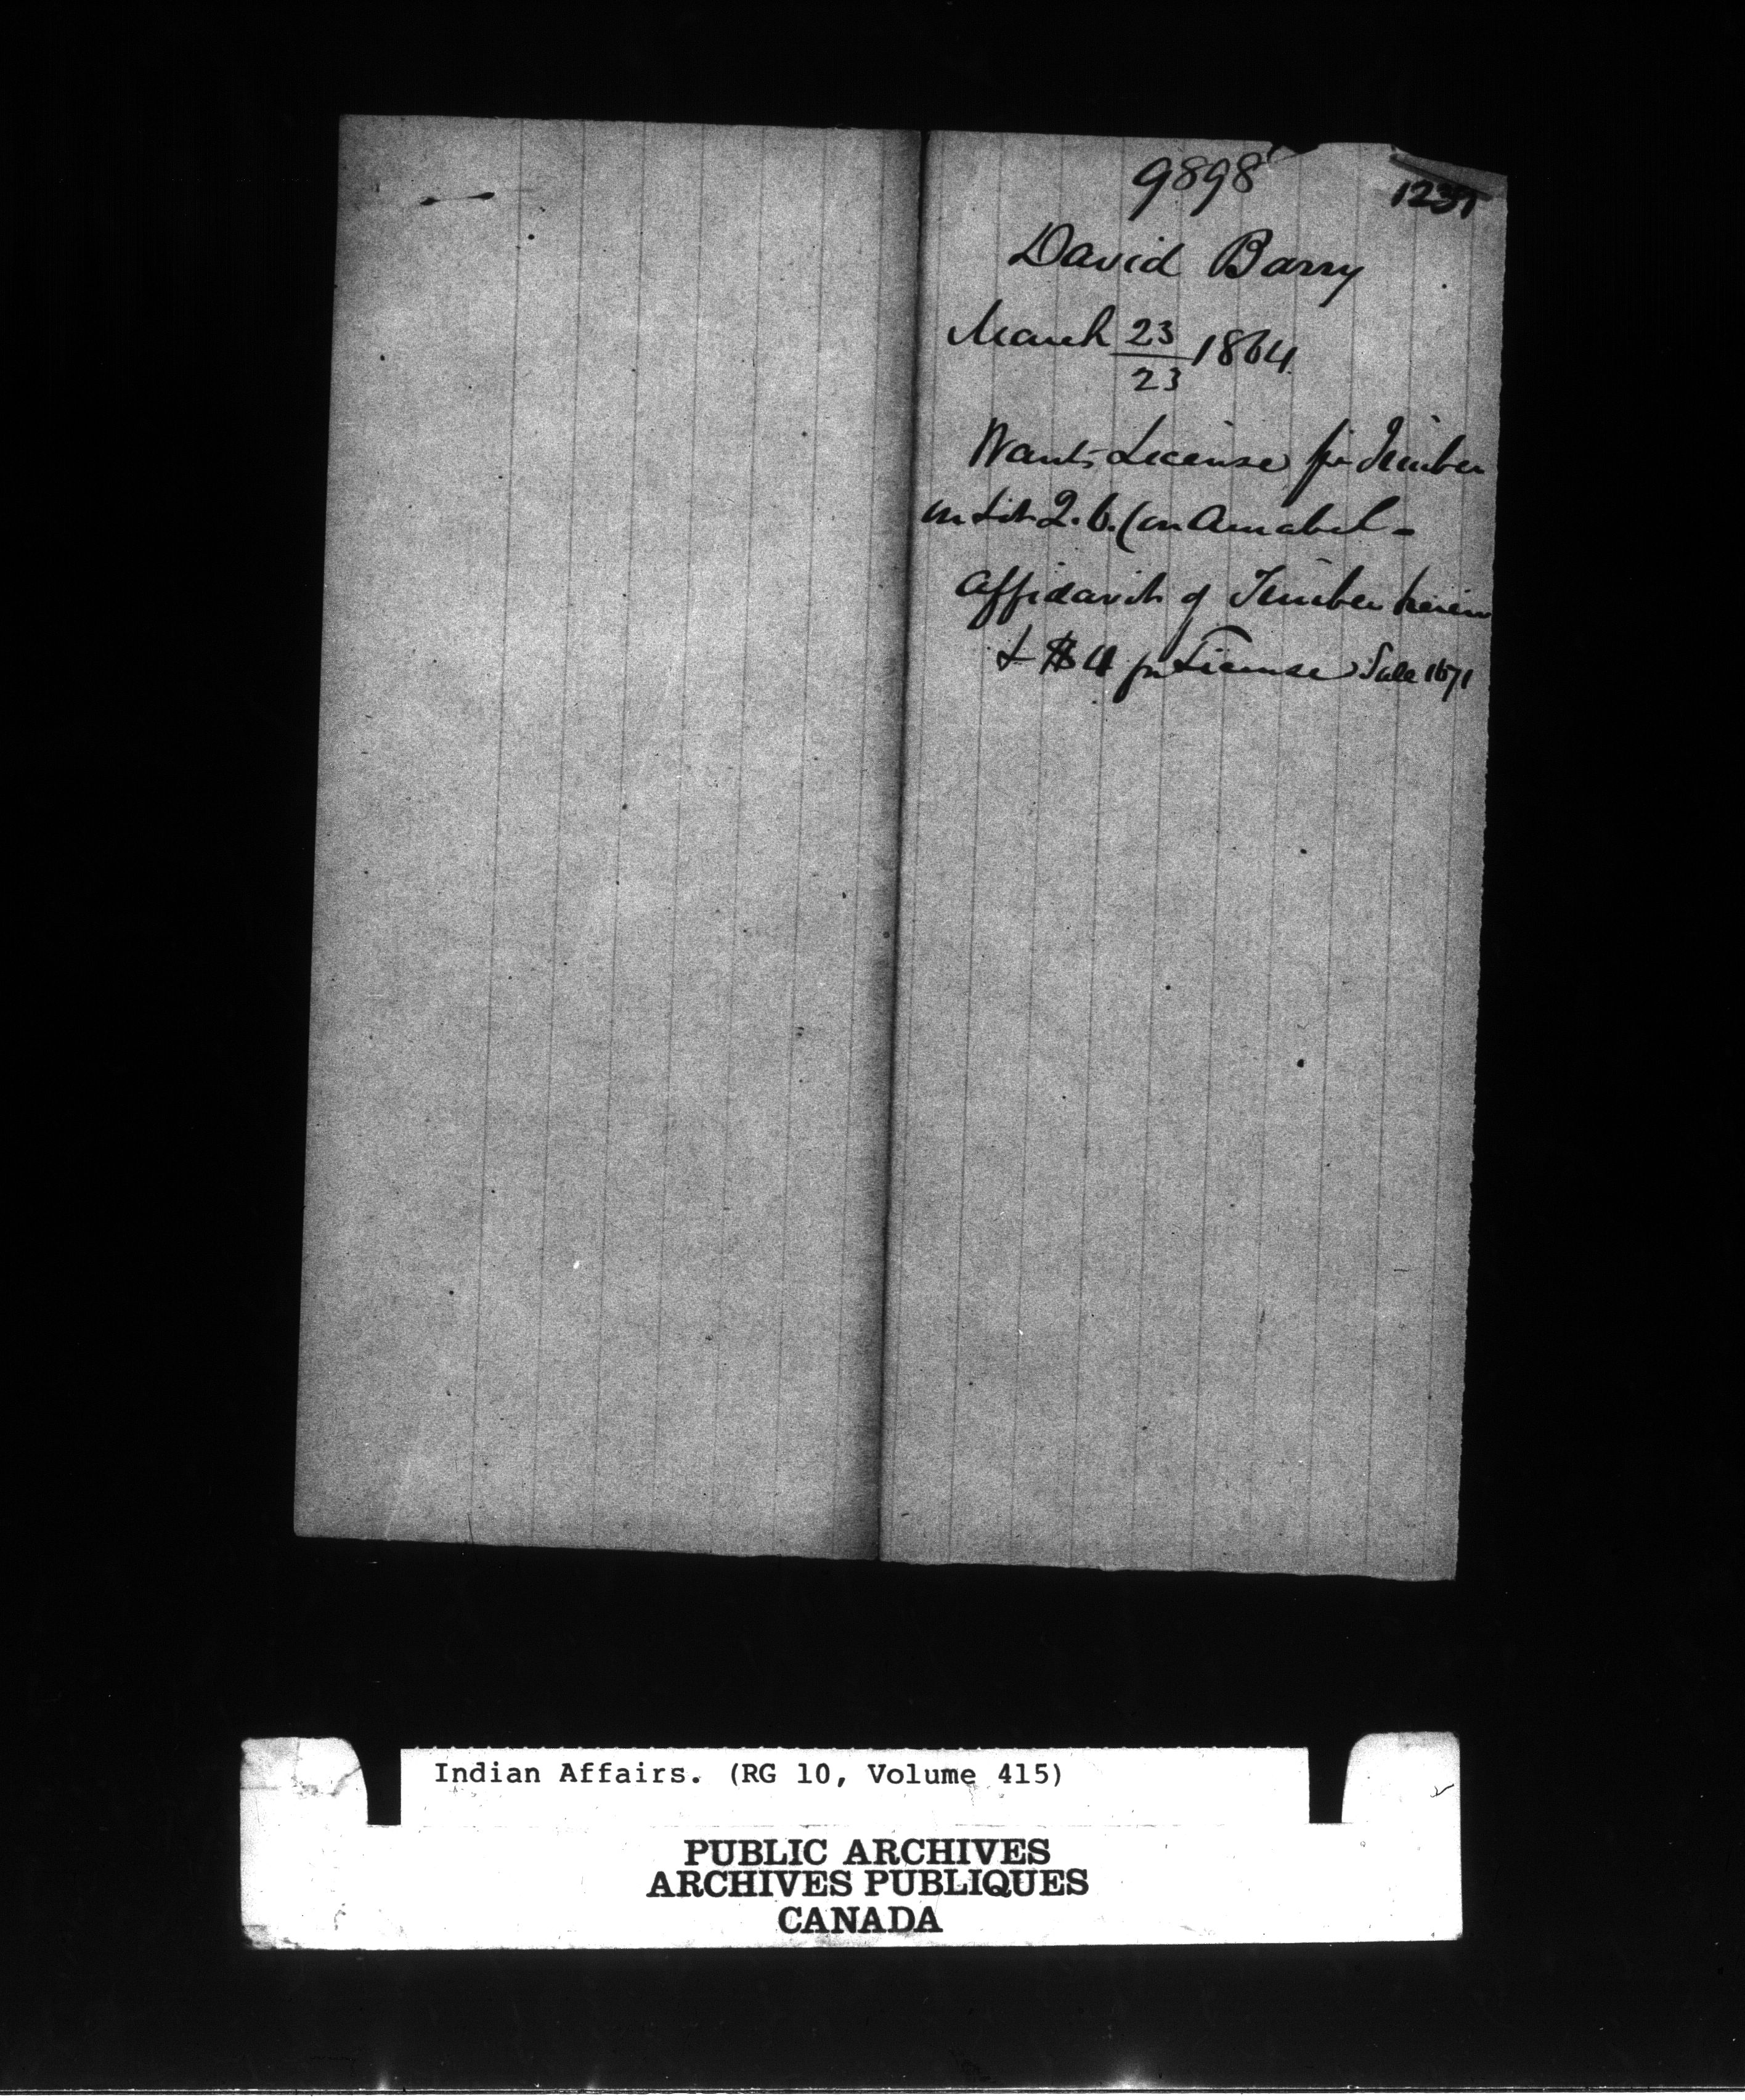 9898
David Barry
March 23/23 1864
Wants License for Timber
on Lot 2. 6. Con Amabel -
Affidavit of Timber herein
& $4 for License Sale 1671
Indian Affairs. (RG 10, Volume 415)
PUBLIC ARCHIVES
ARCHIVES PUBLIQUES
CANADA